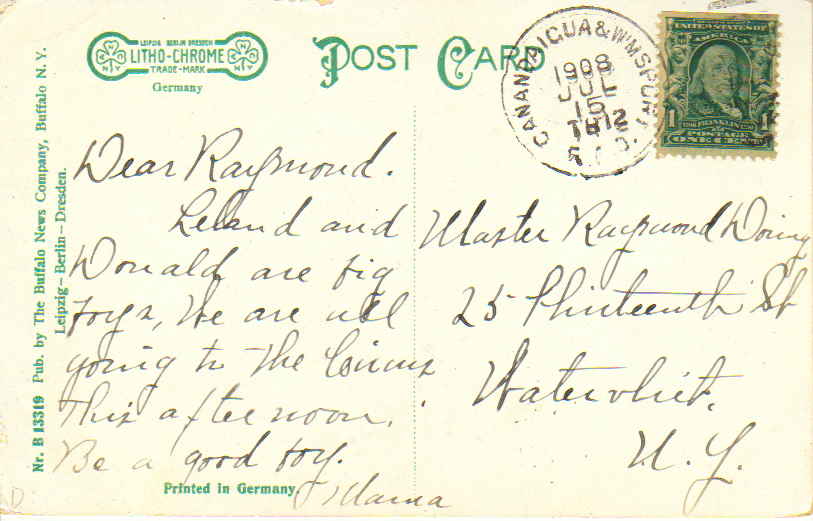 LEIPZIG BERLIN DRESDEN
LITHO-CHROME
TRADE-MARK
Germany
POST CARD
CANANDAIGUA & W'MSPORT
1908
JUL
15
TR 12
R.P.O.
UNITED STATES OF
AMERICA
1 FRANKLIN 1
POSTAGE
ONE CENT
Nr. B 13319 Pub. by The Buffalo News Company, Buffalo N. Y.
Leipzig – Berlin – Dresden.
Dear Raymond.
Leland and
Donald are big
boys, We are all
going to the Circus
this afternoon.
Be a good boy.
Mama
Master Raymond Doing
25 Thirteenth St
Watervliet,
N. Y.
Printed in Germany
D